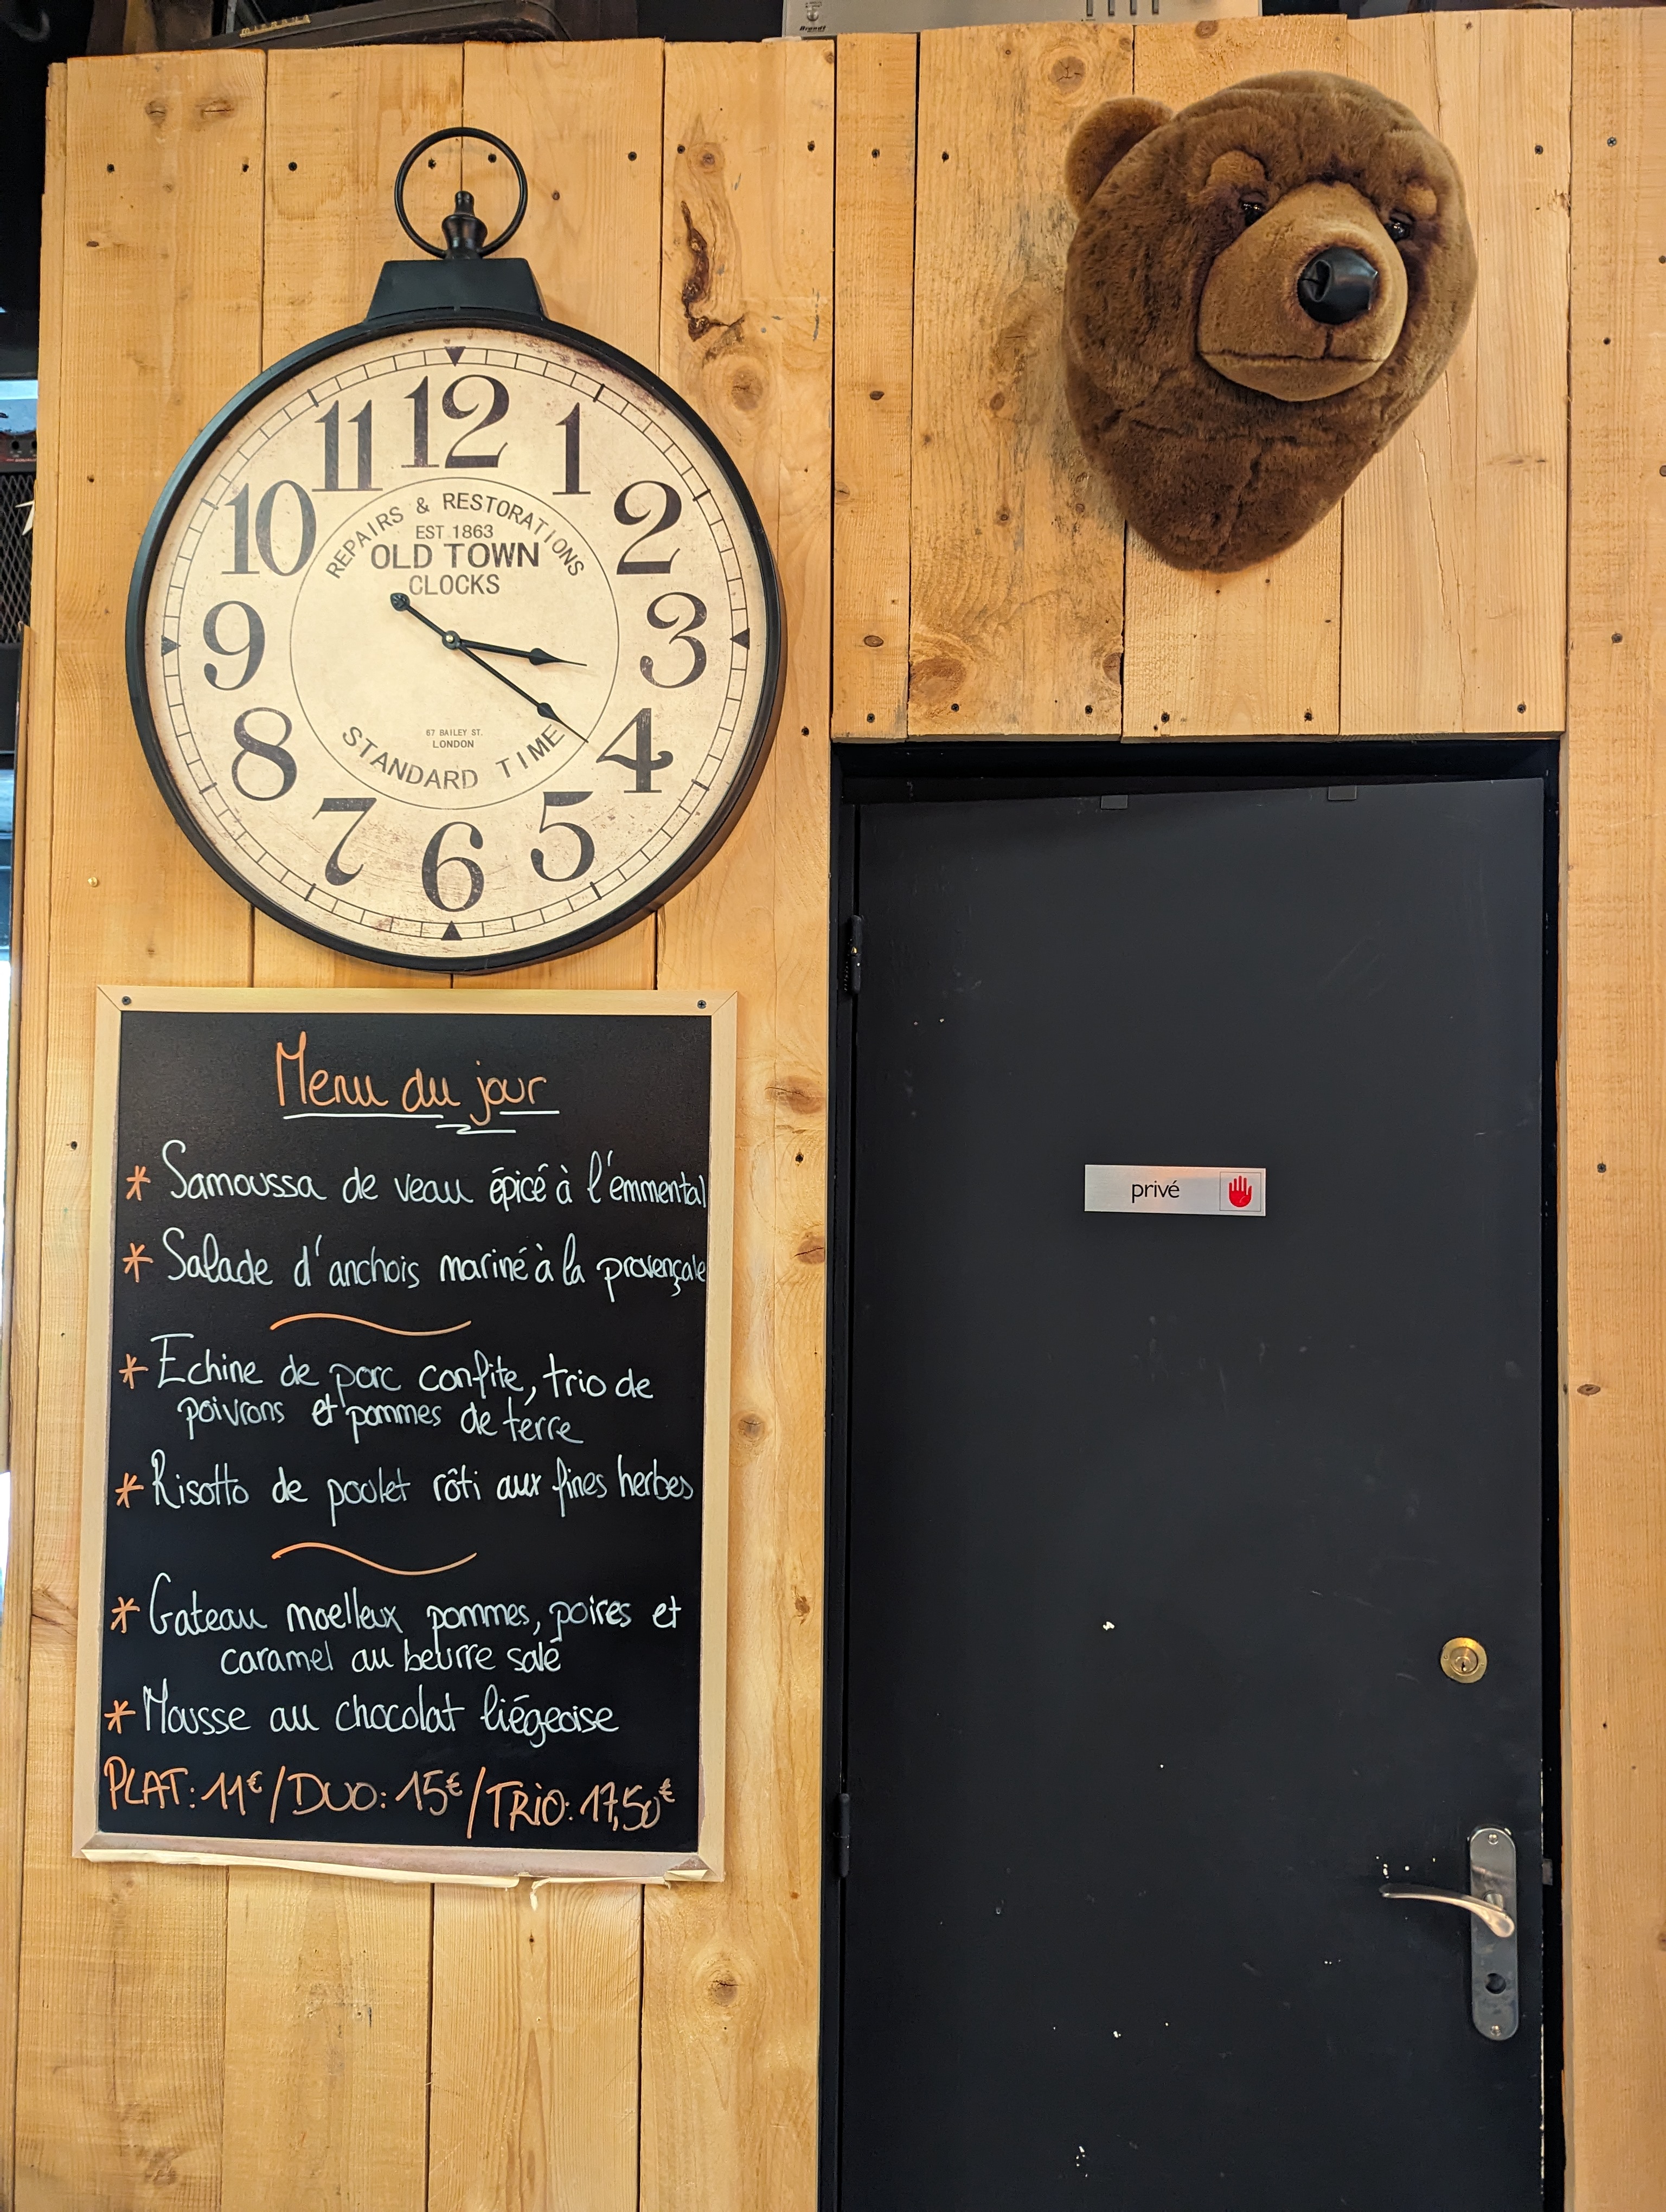 minerva
Brandt
12
11
1
10
2
REPAIRS & RESTORATIONS
EST 1863
OLD TOWN
CLOCKS
9
3
67 BAILEY ST.
LONDON
STANDARD TIME
8
4
7
5
6
Menu du jour
* Samoussa de veau épicé à l'emmental
* Salade d'anchois mariné à la provençale
* Echine de porc confite, trio de
poivrons et pommes de terre
* Risotto de poulet rôti aux fines herbes
* Gateau moelleux pommes, poires et
caramel au beurre salé
* Mousse au chocolat liégeoise
PLAT: 11€ / DUO: 15€ / TRIO: 17,50€
privé